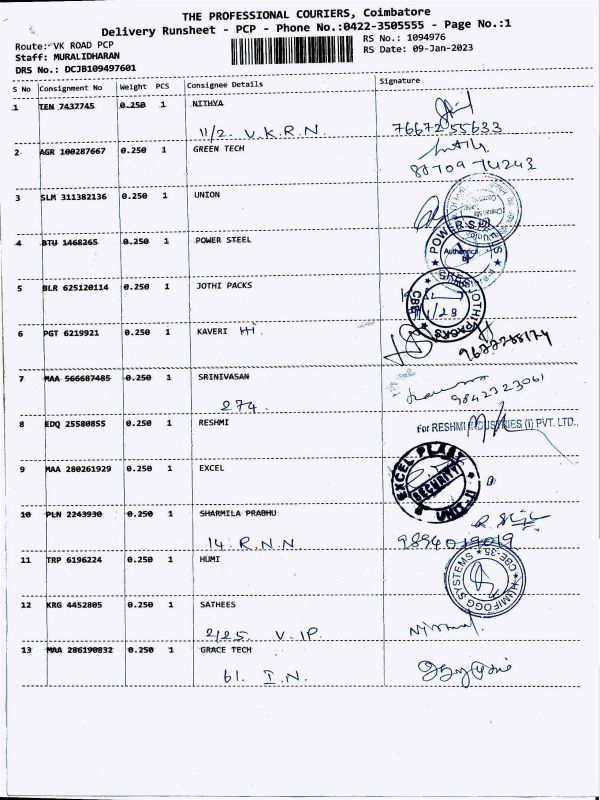 THE PROFESSIONAL COURIERS, Coimbatore
Delivery Runsheet - PCP - Phone No.:0422-3505555 - Page No.:1
Route: VK ROAD PCP
RS No.: 1094976
Staff: MURALIDHARAN
RS Date: 09-Jan-2023
DRS No.: DCJB109497601
S No Consignment No Weight PCS Consignee Details Signature
1 TEN 7437745 0.250 1 NITHYA
11/2. V.K.R.N. 76672 55633
2 AGR 100287667 0.250 1 GREEN TECH
88709 74243
3 SLM 311382136 0.250 1 UNION
4 BTU 1468265 0.250 1 POWER STEEL
5 BLR 625120114 0.250 1 JOTHI PACKS
6 PGT 6219921 0.250 1 KAVERI
9677288174
7 MAA 566687485 0.250 1 SRINIVASAN
274. 9842323061
8 EDQ 25580855 0.250 1 RESHMI
For RESHMI INDUSTRIES (I) PVT. LTD.,
9 MAA 280261929 0.250 1 EXCEL
EXCEL PLAST
SECURITY
UNIT II
10 PLN 2243930 0.250 1 SHARMILA PRABHU
14. R.N.N. 9894019019
11 TRP 6196224 0.250 1 HUMI
HUMIFOGG SYSTEMS * CBE-35 *
12 KRG 4452805 0.250 1 SATHEES
2/25. V.IP. Nirmal
13 MAA 286190832 0.250 1 GRACE TECH
61. I.N.